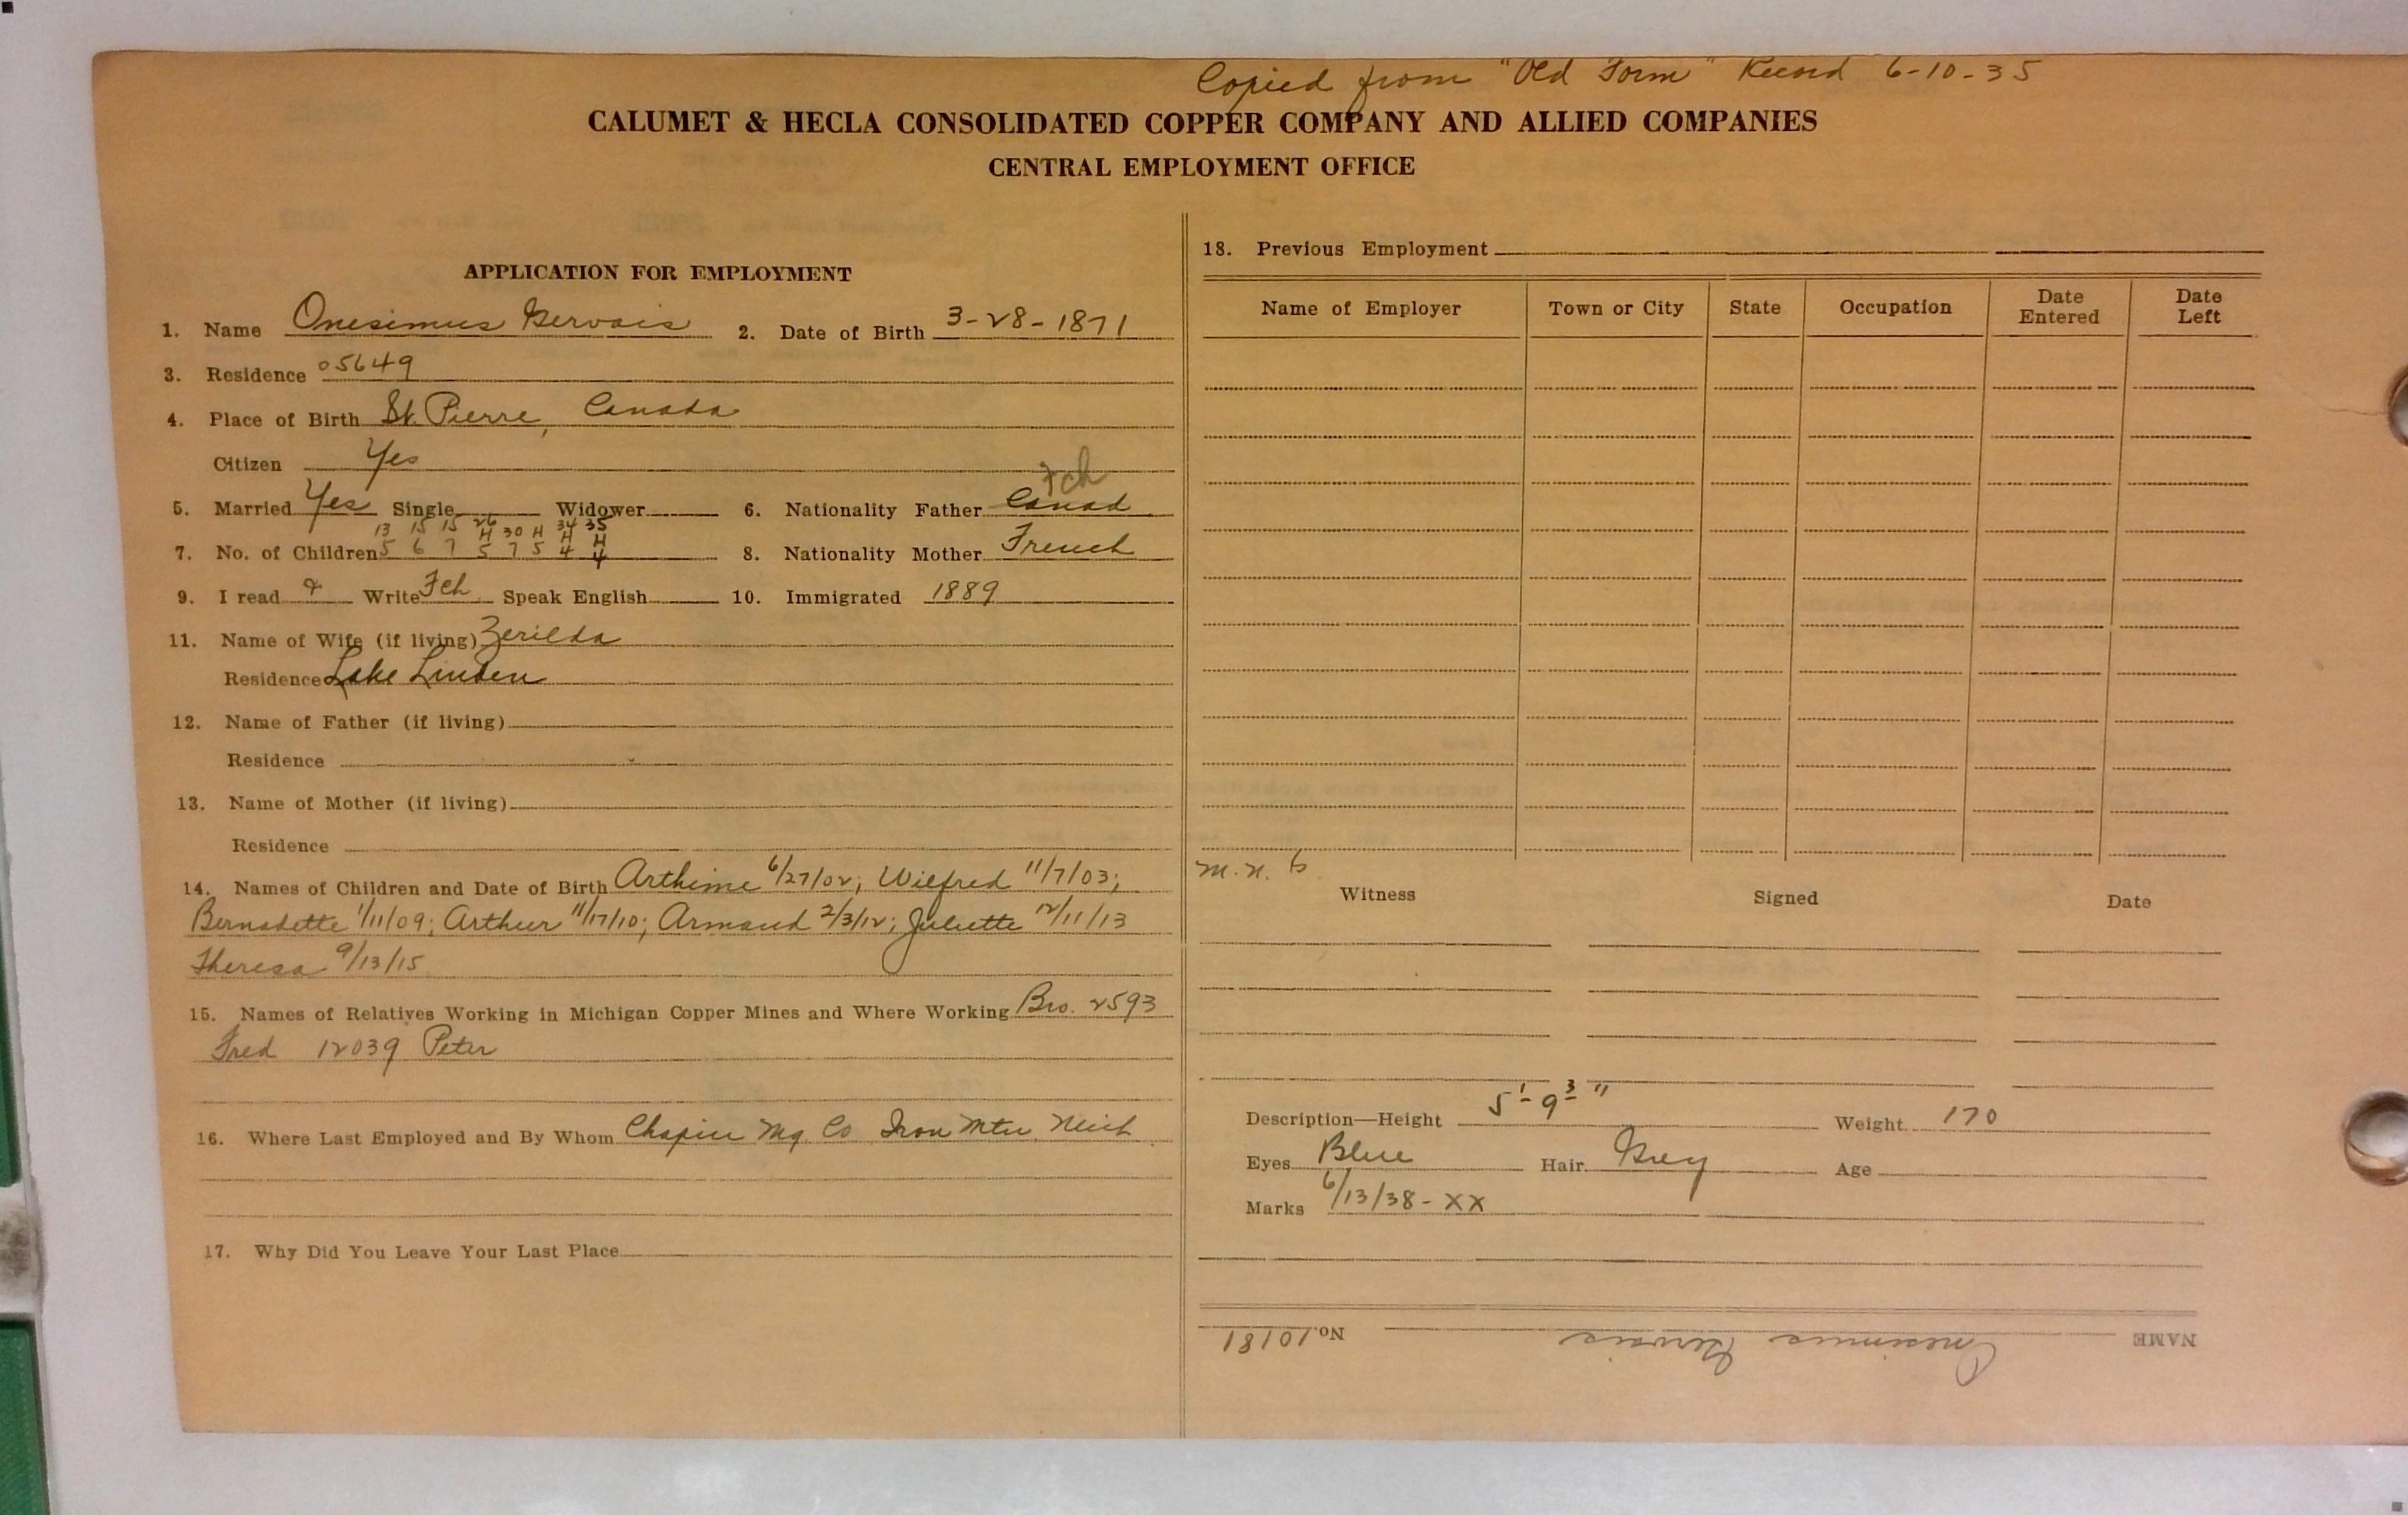 Copied from "Old Form" Record 6-10-35
CALUMET & HECLA CONSOLIDATED COPPER COMPANY AND ALLIED COMPANIES
CENTRAL EMPLOYMENT OFFICE
APPLICATION FOR EMPLOYMENT
1. Name Onesimus Gervais 2. Date of Birth 3-28-1871
3. Residence 05649
4. Place of Birth St. Pierre, Canada
Citizen Yes
Fch
5. Married Yes Single Widower 6. Nationality Father Canad
13 15 15 26 H 30 H 34 H 35 H
7. No. of Children 5 6 7 5 7 5 4 4 8. Nationality Mother French
9. I read & Write Fch Speak English 10. Immigrated 1889
11. Name of Wife (if living) Zerilda
Residence Lake Linden
12. Name of Father (if living)
Residence
13. Name of Mother (if living)
Residence
14. Names of Children and Date of Birth Artheme 6/27/02; Wilfred 11/7/03;
Bernadette 1/11/09; Arthur 11/17/10; Armand 2/3/12; Juliette 12/11/13
Theresa 9/13/15
15. Names of Relatives Working in Michigan Copper Mines and Where Working Bro. 2593
Fred 12039 Peter
16. Where Last Employed and By Whom Chapin Mg. Co Iron Mtn. Mich
17. Why Did You Leave Your Last Place
18. Previous Employment
Name of Employer Town or City State Occupation Date Entered Date Left
M. N. B.
Witness Signed Date
Description—Height 5'-9 3" Weight 170
Eyes Blue Hair Grey Age
Marks 6/13/38-XX
NAME Onesimus Gervais No. 10181